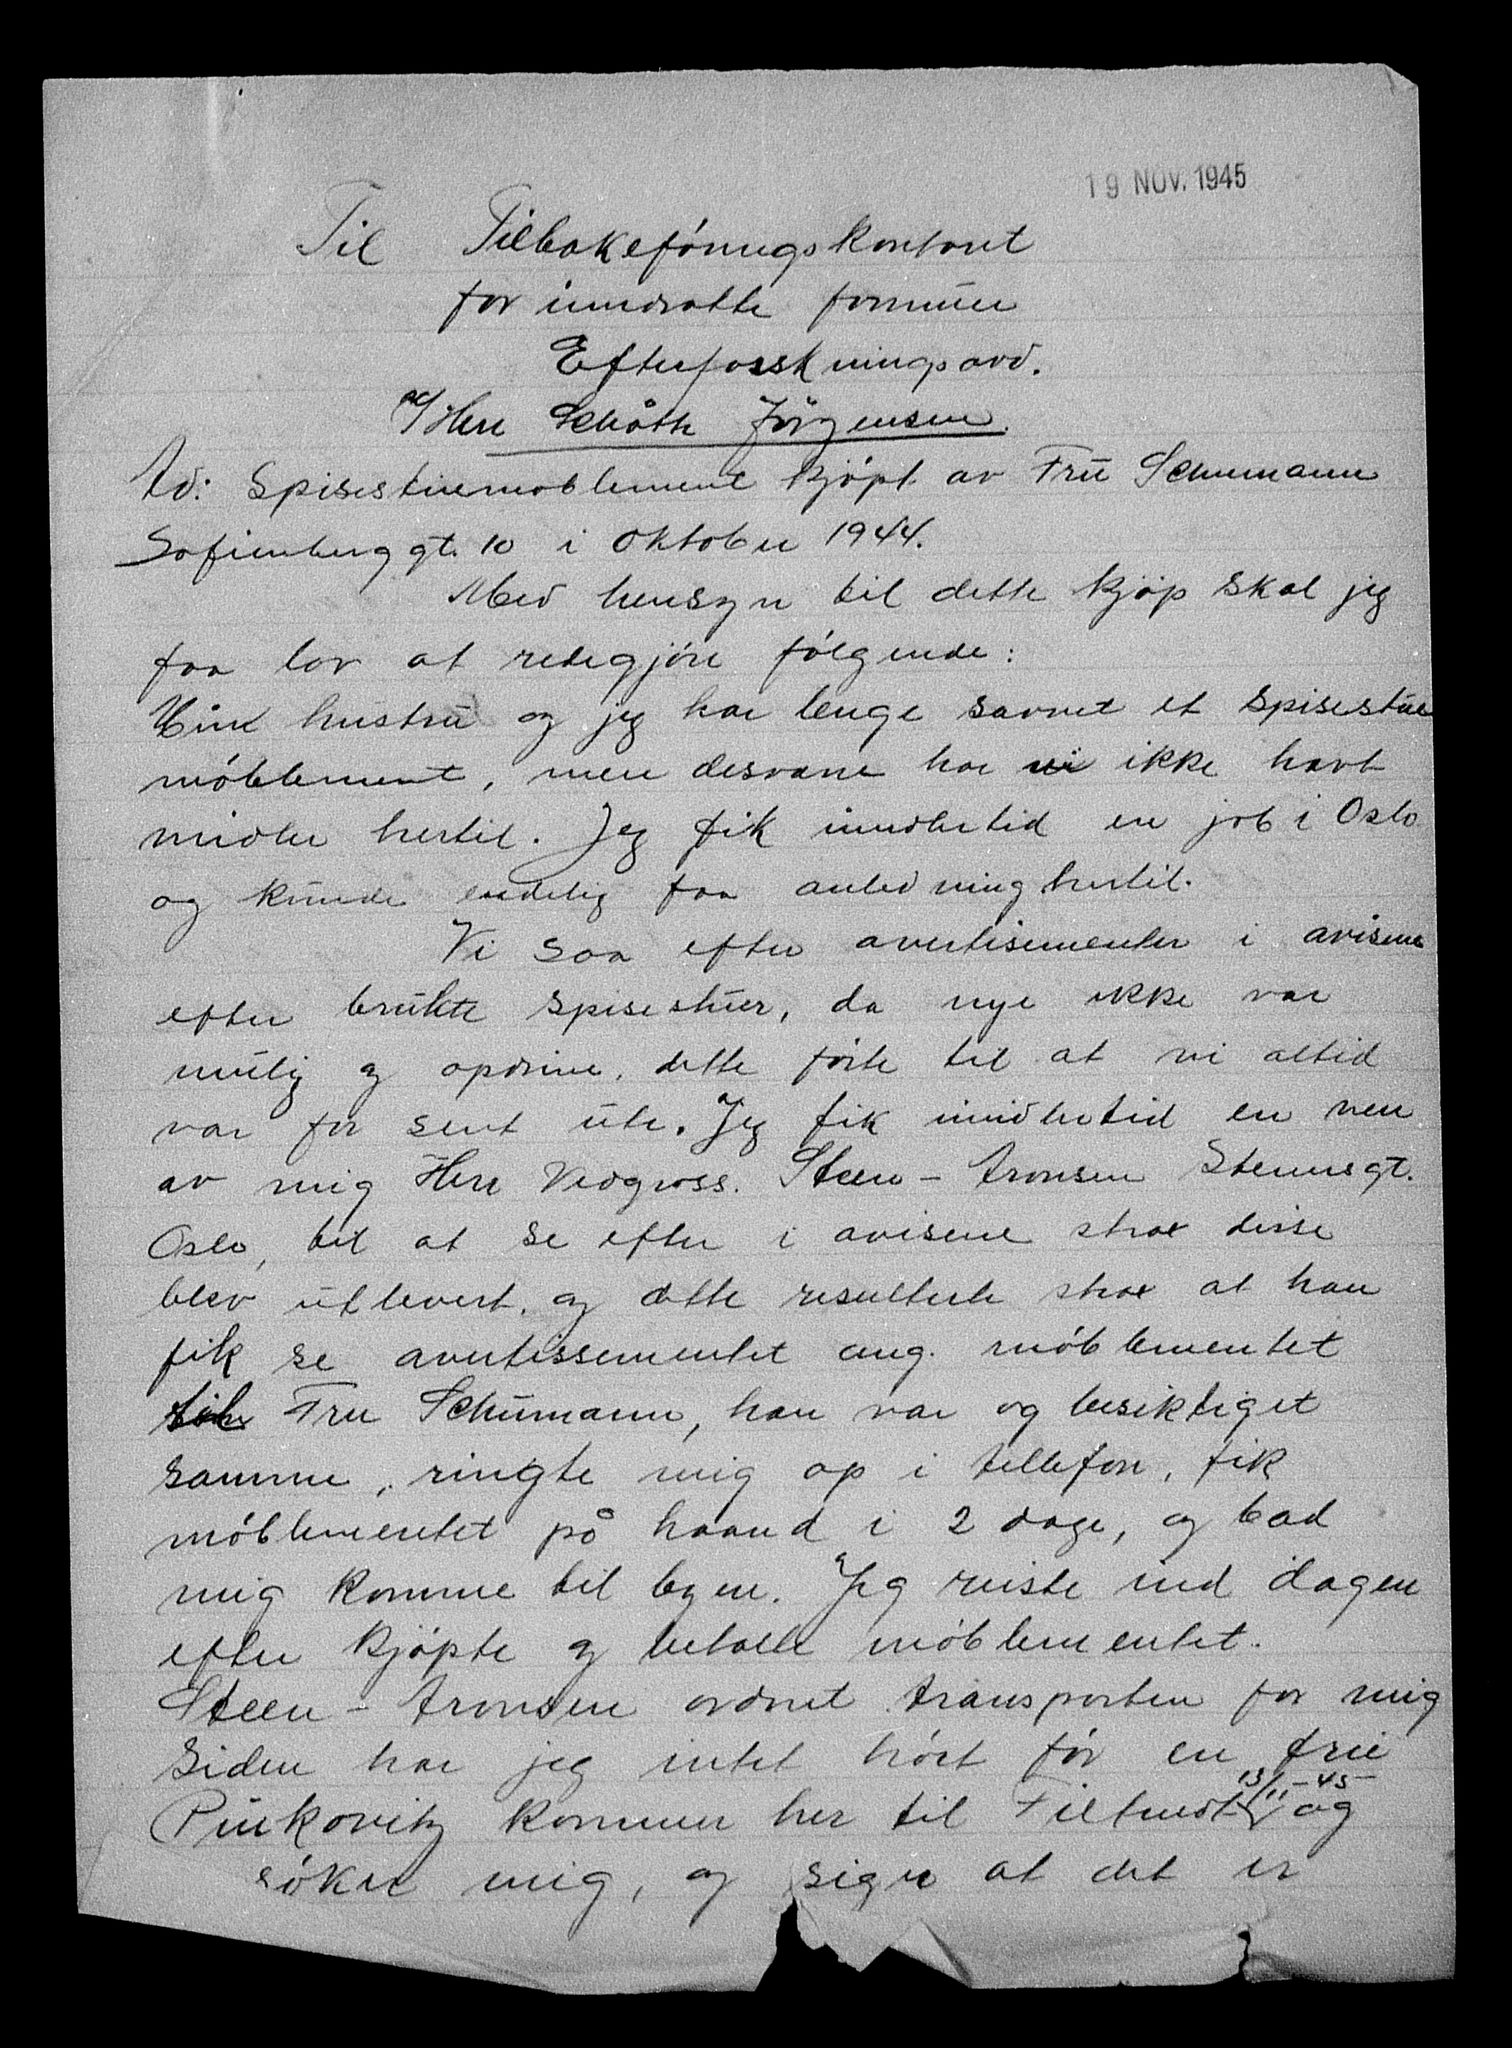 19 NOV. 1945
Til Tilbakeföringskontoret
for inndratte formuer
Efterforskningsavd.
Herr Schøtt Jörgensen.
Ad: Spisestuemøblement kjöpt av Frü Schumann
Sofienberggt. 10 i Oktober 1944.
Med hensyn til dette kjöp skal jeg
faa lov at redegjöre fölgende:
Min hustrü og jeg har lenge savnet et spisestue
möblement, men desværre har vi ikke havt
midler hertil. Jeg fik imidlertid en job i Oslo
og künde endelig faa anledning hertil.
Vi saa efter avertisementer i avisene
efter brükte spisestüer, da nye ikke var
mülig og opdrive, dette förte til at vi altid
var for sent üte. Jeg fik imidlertid en ven
av mig Herr Vedgross. Steen-Aronsen Stensgt.
Oslo, til at se efter i avisene strax disse
blev ütlevert, og dette resulterte strax at han
fik se avertissementet ang. möblementet
Fru Schümann, han var og besiktiget
samme, ringte mig op i tellefon, fik
möblementet på haand i 2 dage, og bad
mig komme til byen. Jeg reiste ind dagen
efter kjöpte og betalte möblementet.
Steen-Aronsen ordnet transporten for mig
Siden har jeg intet hört för en früe
Pinkovitz kommer her til 13/11-45- og
söker mig, og siger at det er